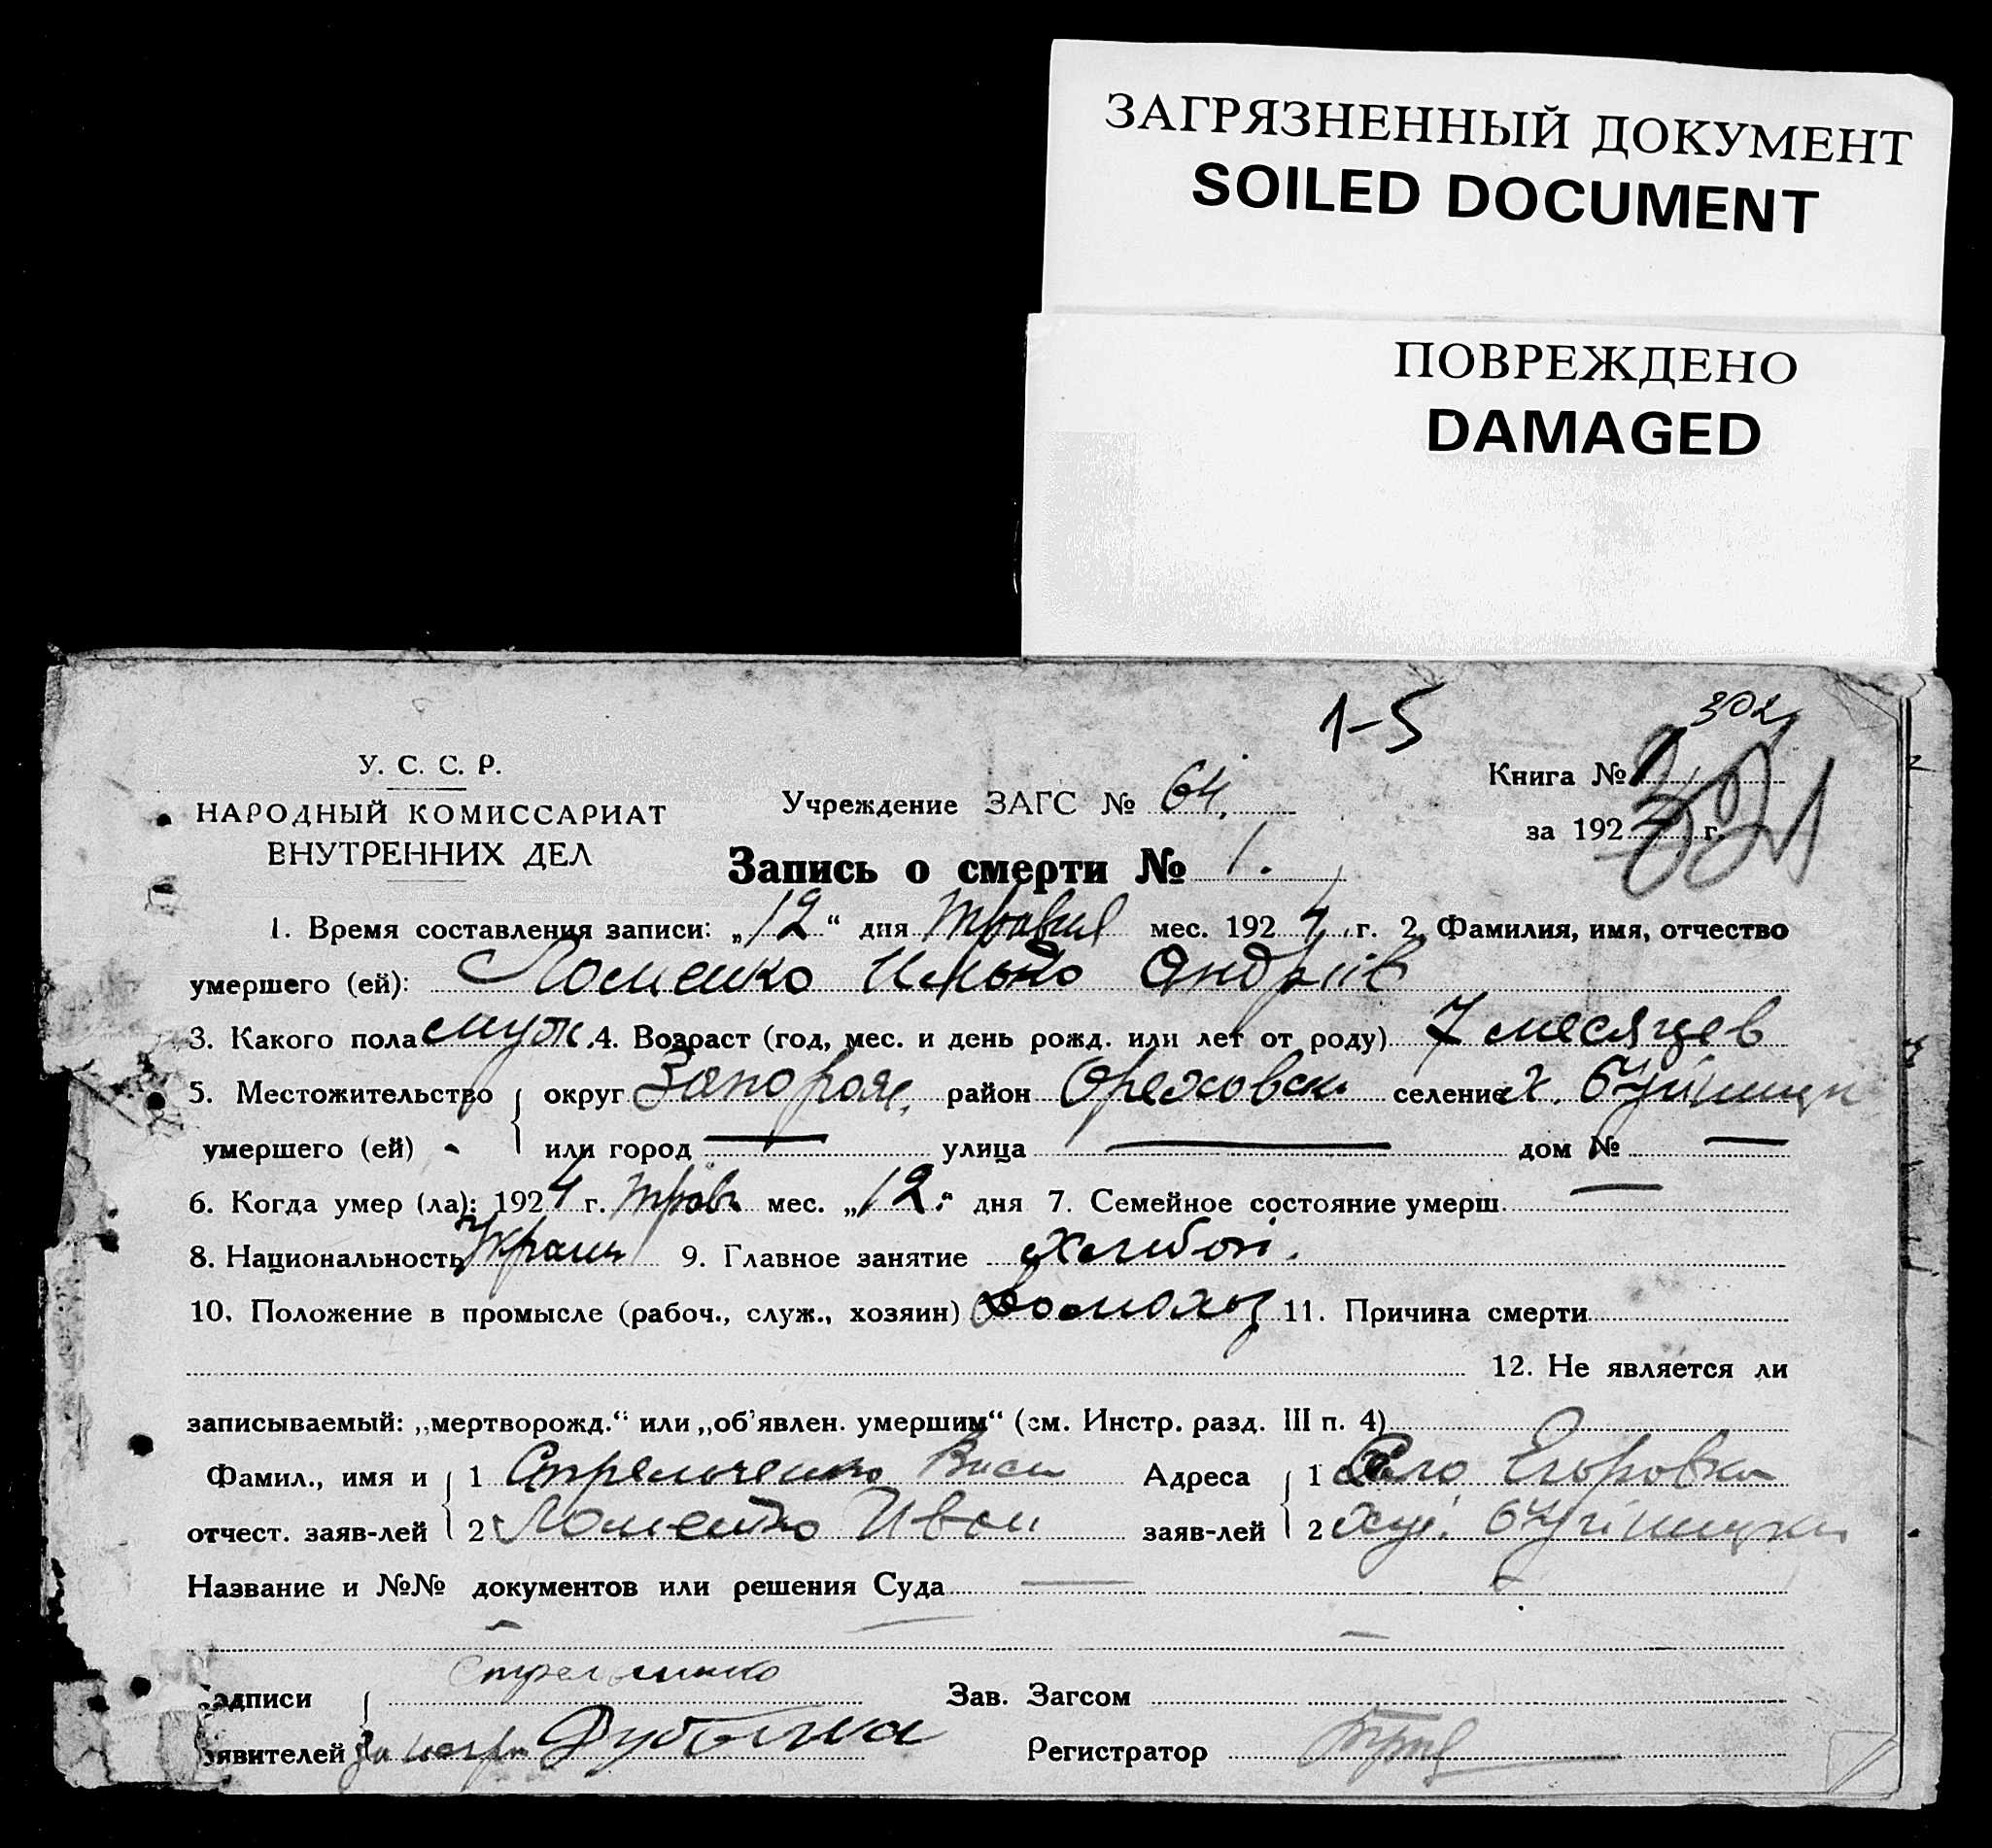 ЗАГРЯЗНЕННЫЙ ДОКУМЕНТ
SOILED DOCUMENT
ПОВРЕЖДЕНО
DAMAGED
1-5
302
У. С. С. Р.
НАРОДНЫЙ КОМИССАРИАТ
ВНУТРЕННИХ ДЕЛ
Учреждение ЗАГС № 64.
Книга №
за 192 г.
Запись о смерти № 1.
1. Время составления записи: „12“ дня Травня мес. 1924 г. 2. Фамилия, имя, отчество
умершего (ей): Ломенко Илько Андріїв
3. Какого пола муж. 4. Возраст (год, мес. и день рожд. или лет от роду) 7 месяцев
5. Местожительство округ Запорож. район Ореховск. селение х.
умершего (ей) или город — улица — дом № —
6. Когда умер (ла): 1924 г. трав. мес. „12“ дня 7. Семейное состояние умерш. —
8. Национальность Украин 9. Главное занятие
10. Положение в промысле (рабоч., служ., хозяин) Домохоз 11. Причина смерти
12. Не является ли
записываемый: „мертворожд.“ или „об'явлен. умершим“ (см. Инстр. разд. III п. 4)
Фамил., имя и 1 Стрельченко Васи Адреса 1 Село Егоровка
отчест. заяв-лей 2 Ломенко Иван заяв-лей 2
Название и №№ документов или решения Суда —
— — —
адписи Зав. Загсом
явителей Регистратор